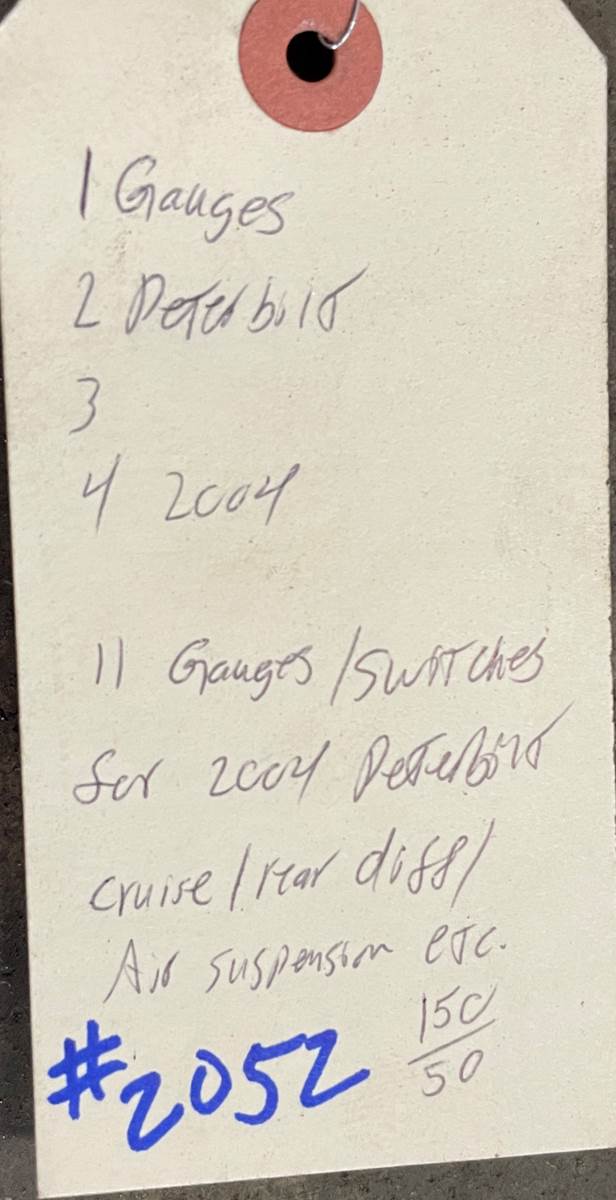 1 Gauges
2 Peterbilt
3
4 2004
11 Gauges/switches
for 2004 Peterbilt
cruise/rear diff/
Air suspension etc.
150
50
#2052